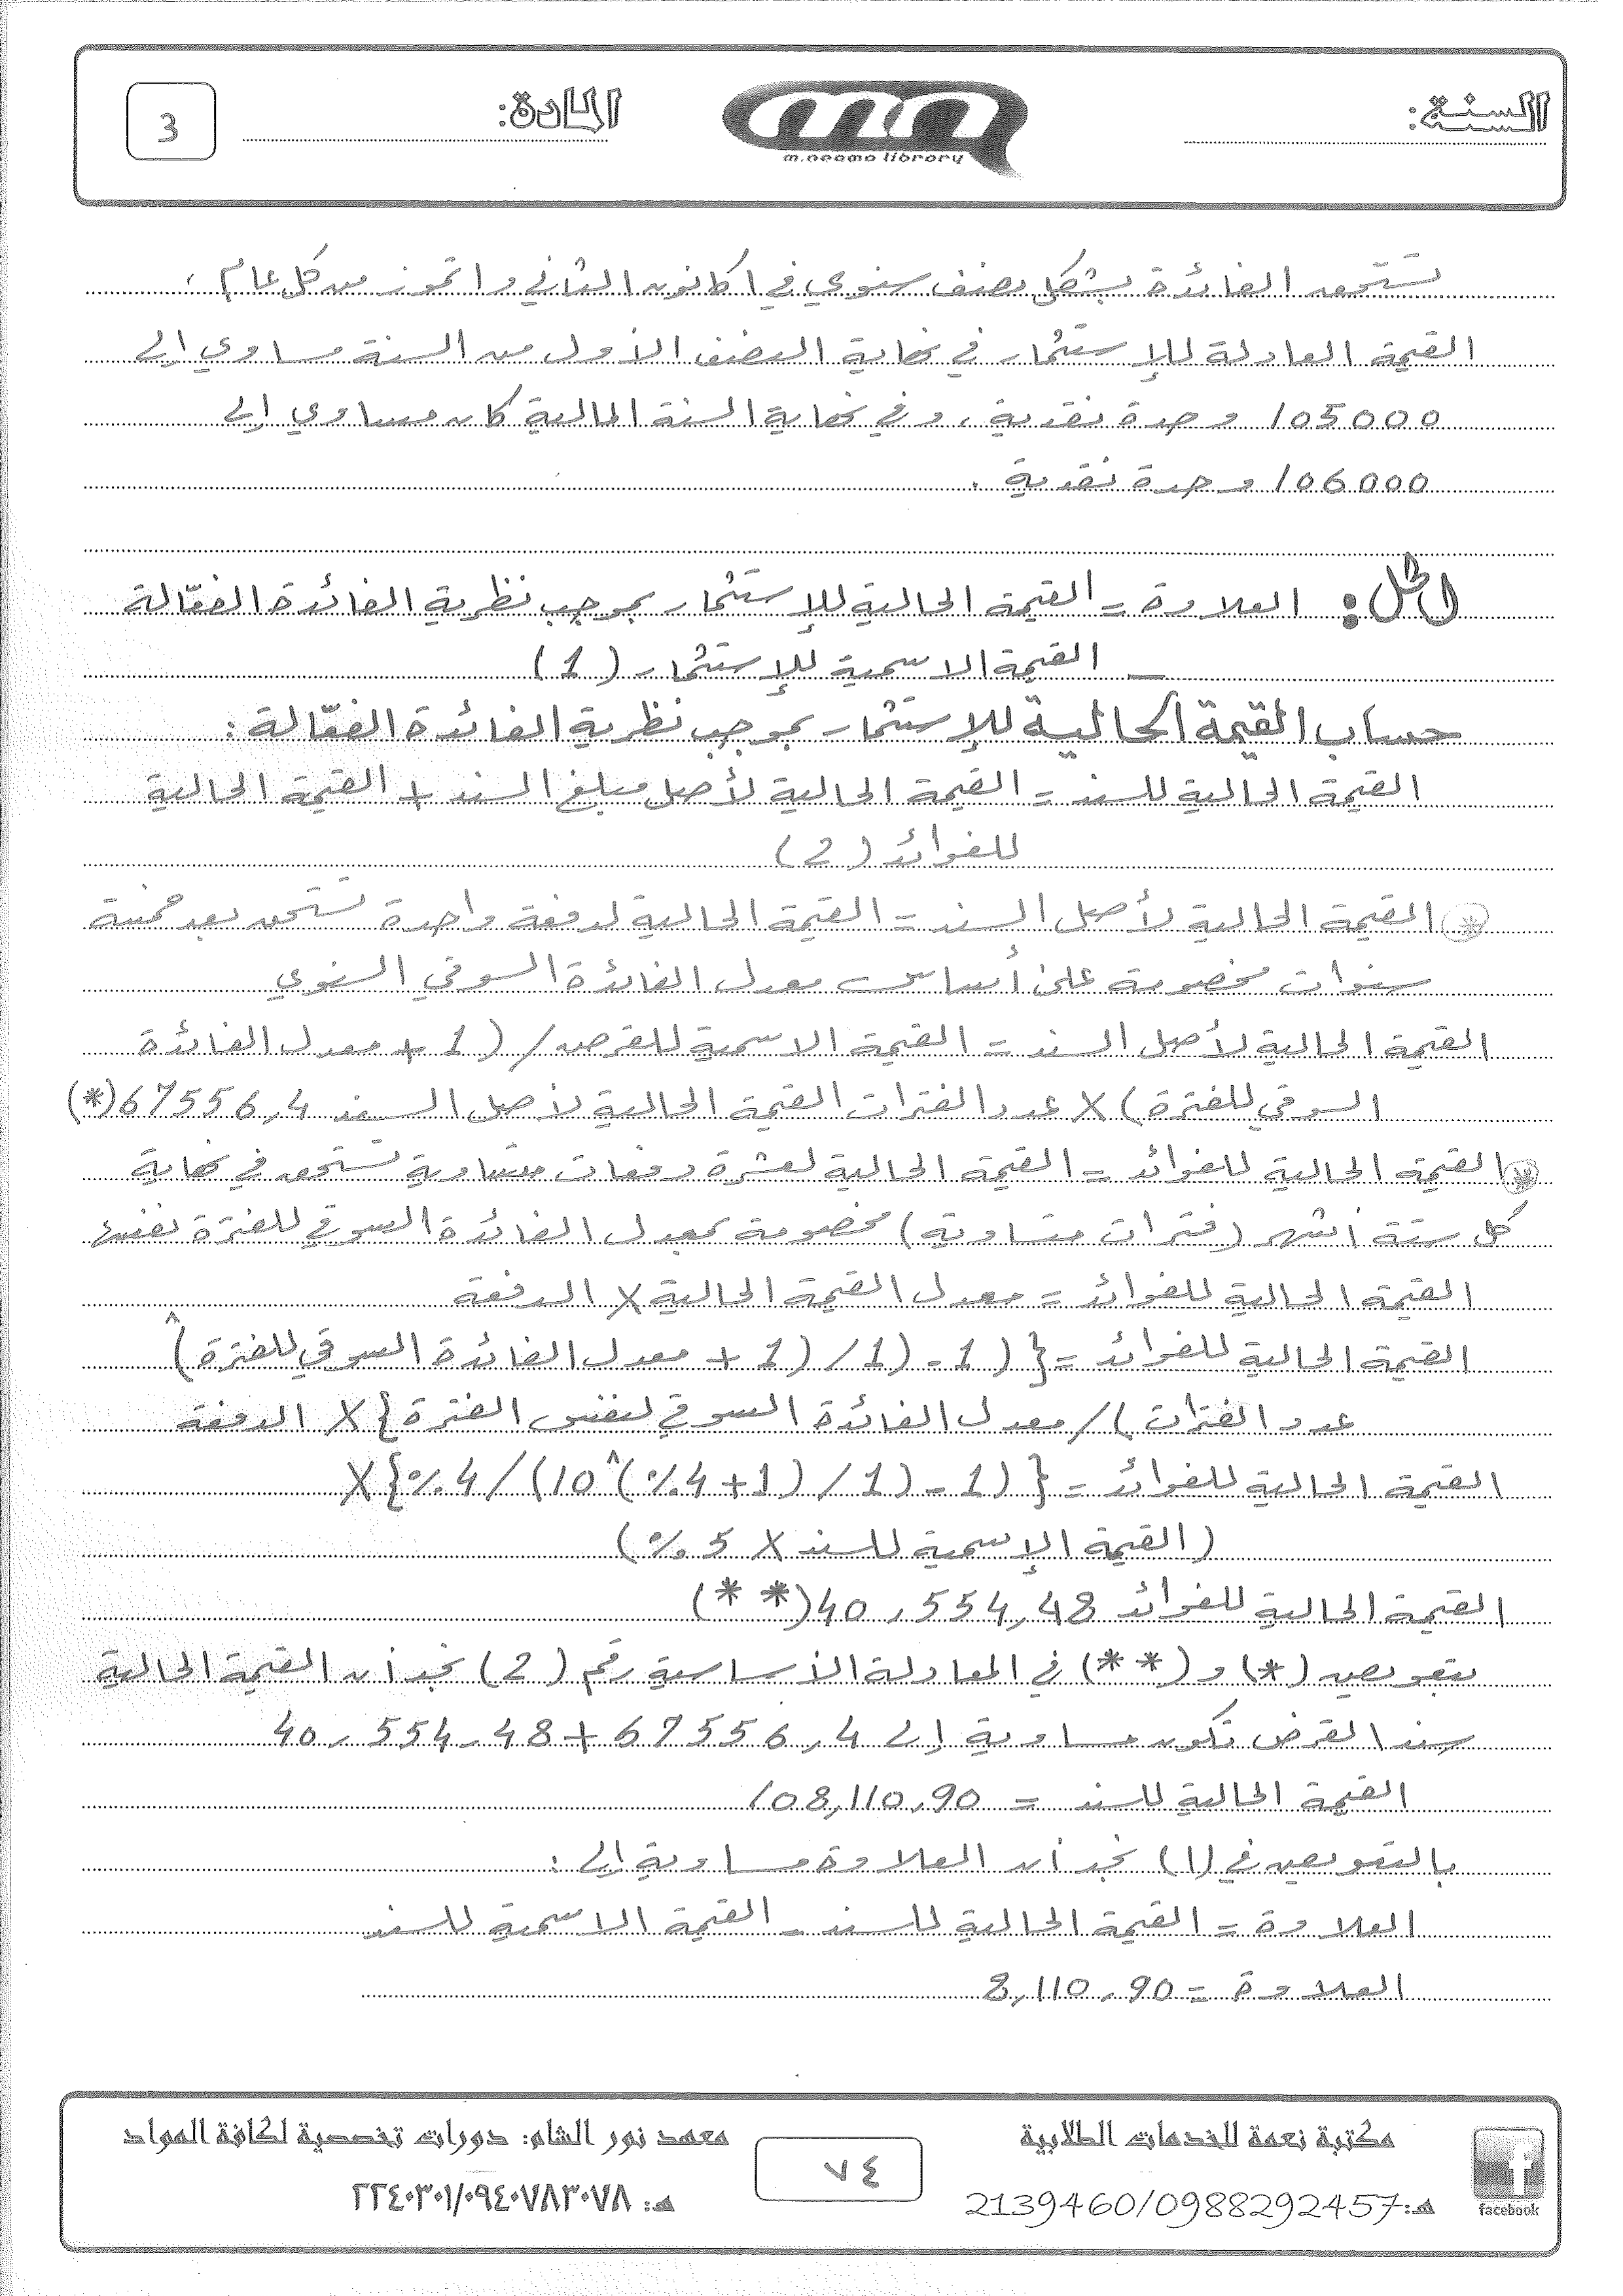 السنة:
m.neama library
المادة:
3
تستحق الفائدة بشكل نصف سنوي في 1 كانون الثاني و 1 تموز من كل عام .
القيمة العادلة للإستثمار في نهاية النصف الأول من السنة مساوي إلى
105000 وحدة نقدية ، وفي نهاية السنة المالية كان مساوي إلى
106000 وحدة نقدية .
الحل: العلاوة = القيمة الحالية للإستثمار بموجب نظرية الفائدة الفعّالة
_ القيمة الاسمية للإستثمار (1)
حساب القيمة الحالية للإستثمار بموجب نظرية الفائدة الفعّالة :
القيمة الحالية للسند = القيمة الحالية لأصل مبلغ السند + القيمة الحالية
للفوائد (2)
* القيمة الحالية لأصل السند = القيمة الحالية لدفعة واحدة تستحق بعد خمسة
سنوات مخصومة على أساس معدل الفائدة السوقي السنوي
القيمة الحالية لأصل السند = القيمة الاسمية للقرض / (1 + معدل الفائدة
السوقي للفترة) X عدد الفترات القيمة الحالية لأصل السند 67556,4 (*)
* القيمة الحالية للفوائد = القيمة الحالية لعشرة دفعات متساوية تستحق في نهاية
كل ستة أشهر (فترات متساوية) مخصومة بمعدل الفائدة السوقي للفترة نفسها
القيمة الحالية للفوائد = معدل القيمة الحالية X الدفعة
القيمة الحالية للفوائد = } (1 - (1 / (1 + معدل الفائدة السوقي للفترة)^
عدد الفترات) / معدل الفائدة السوقي لنفس الفترة { X الدفعة
القيمة الحالية للفوائد = } (1 - (1 / (1+4%)^10) / 4% { X
(القيمة الإسمية للسند X 5 %)
القيمة الحالية للفوائد 40,554,48 (**)
بتعويض (*) و (**) في المعادلة الأساسية رقم (2) نجد أن القيمة الحالية
سند القرض تكون مساوية إلى 67556,4 + 40,554,48
القيمة الحالية للسند = 108,110,90
بالتعويض في (1) نجد أن العلاوة مساوية إلى :
العلاوة = القيمة الحالية للسند - القيمة الاسمية للسند
العلاوة = 8,110,90
مكتبة نعمة للخدمات الطلابية
هـ: 2139460/0988292457
facebook
٧٤
معهد نور الشام: دورات تخصصية لكافة المواد
هـ: ٢٢٤٠٣٠١/٠٩٤٠٧٨٣٠٧٨